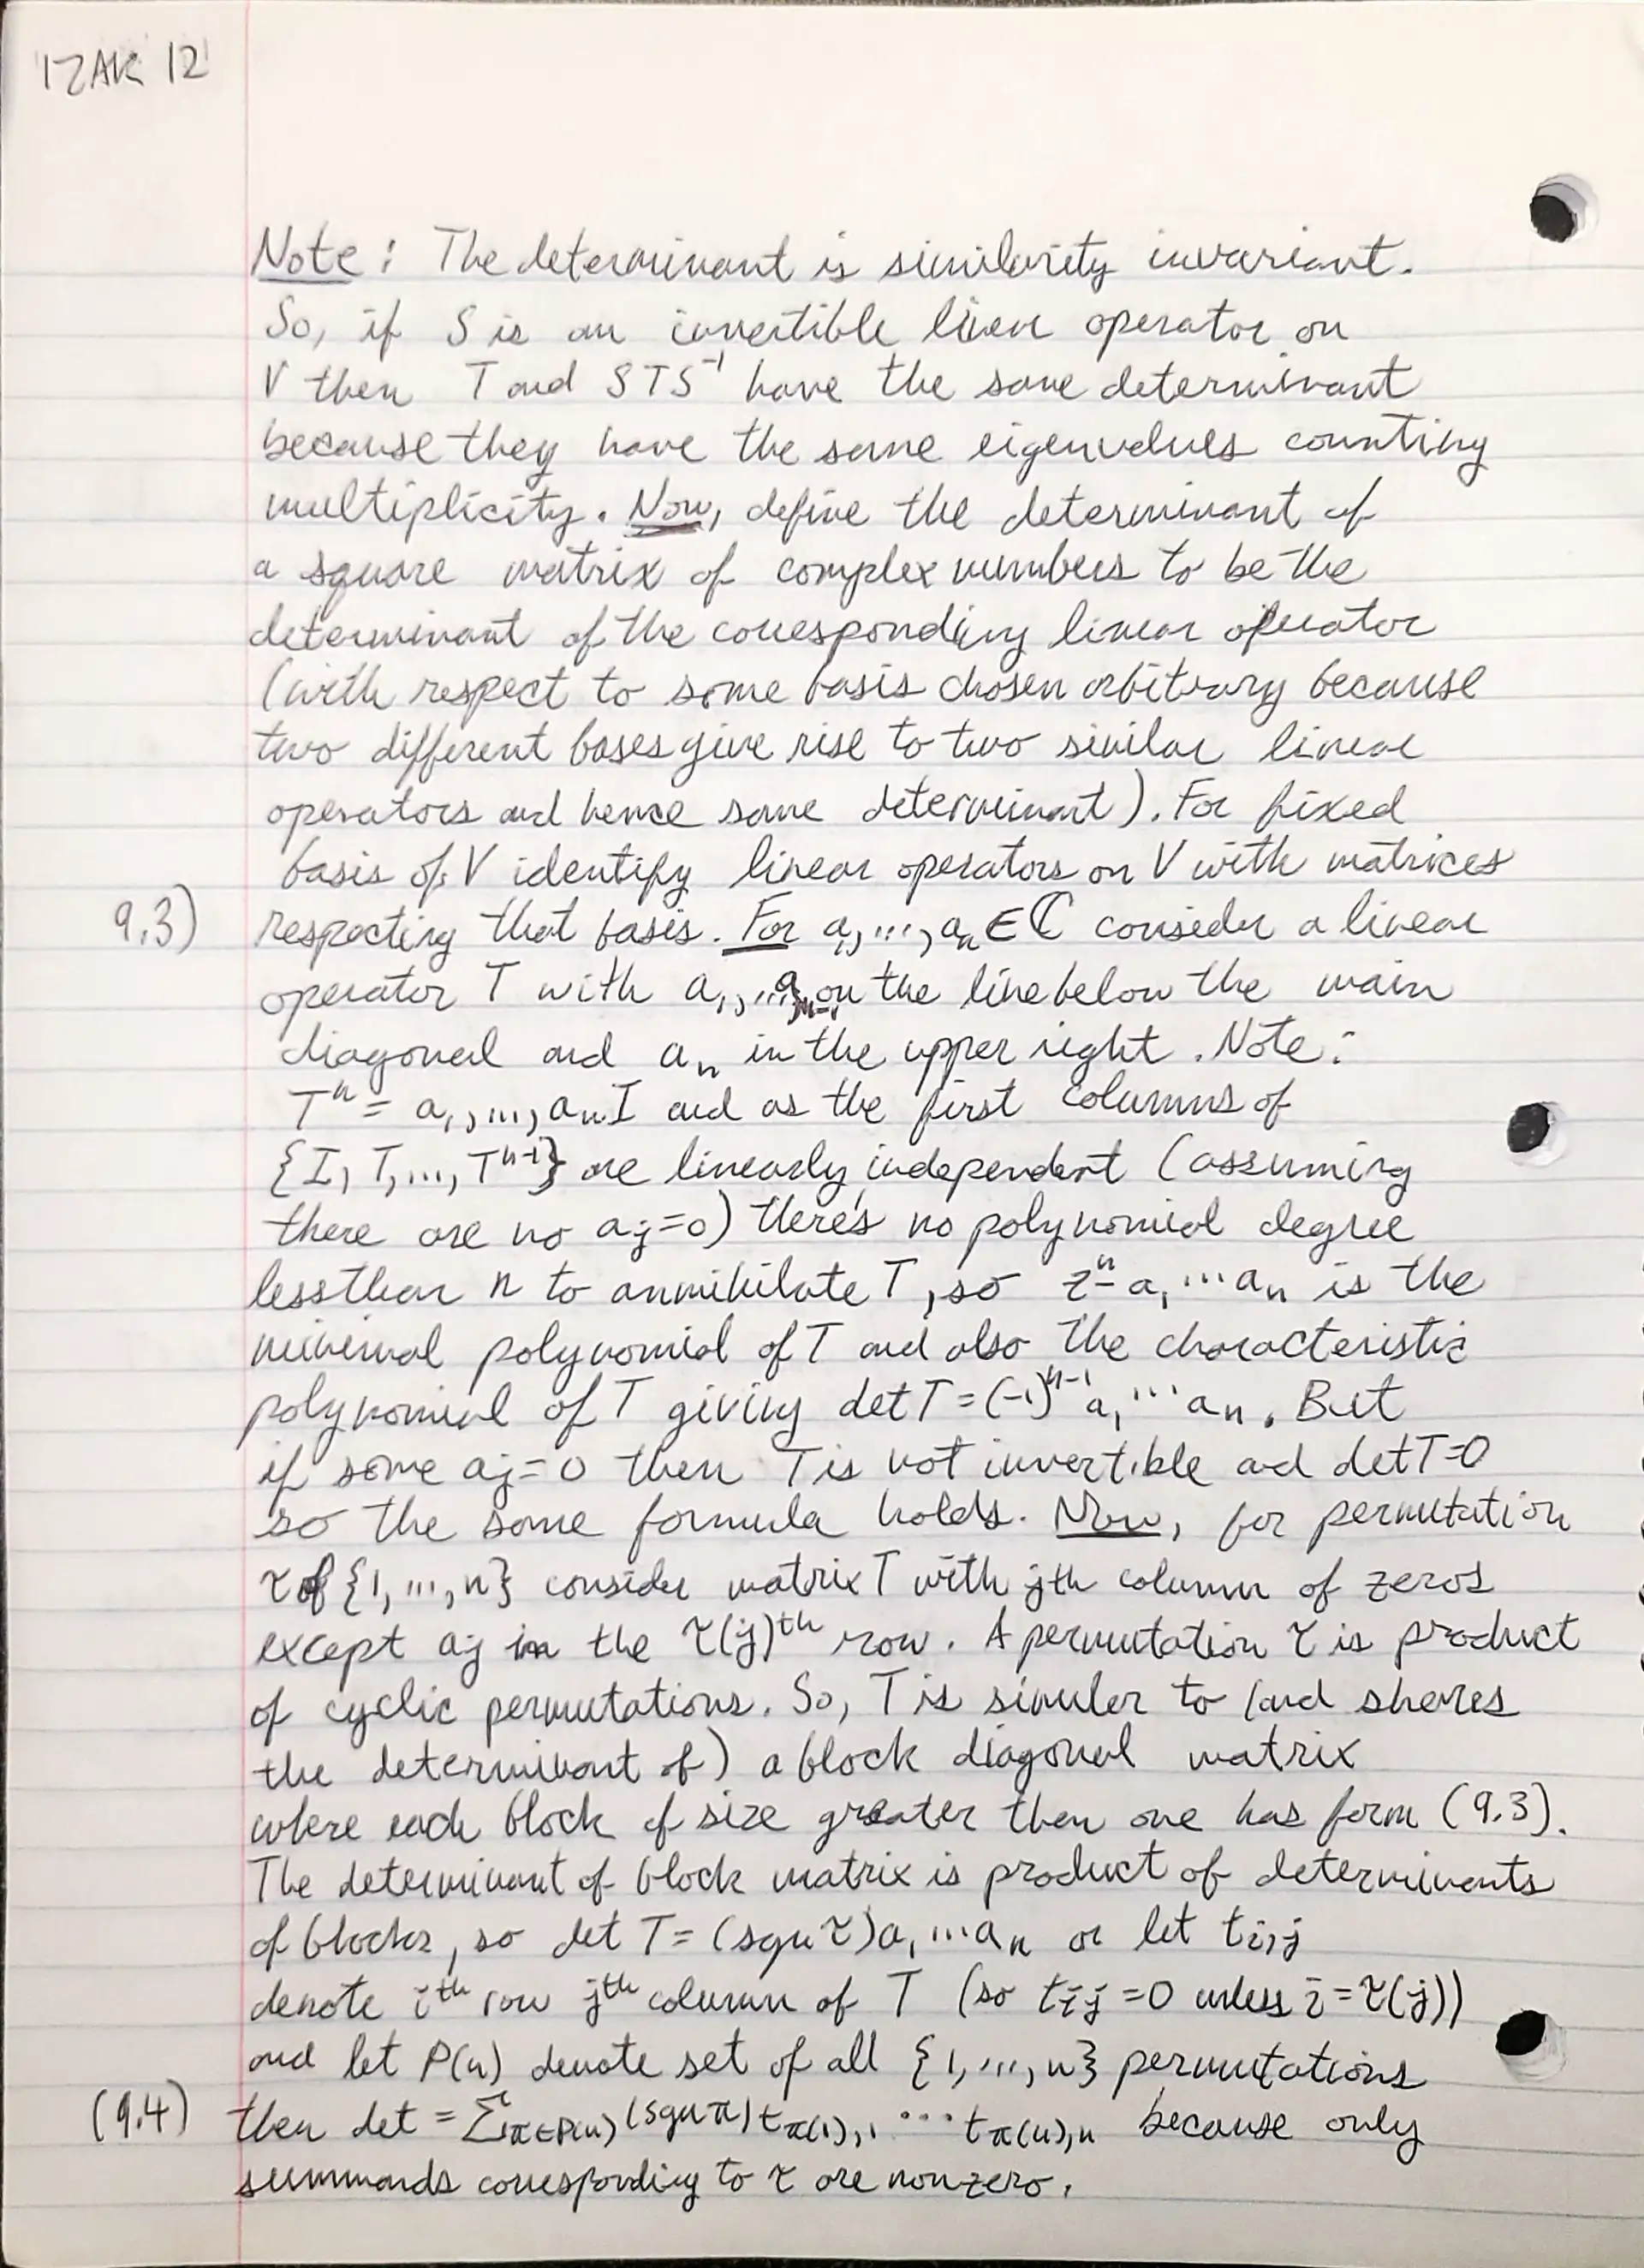 IZAK 12
Note: The determinant is similarity invariant.
So, if S is an invertible linear operator on
V then T and STS⁻¹ have the same determinant
because they have the same eigenvalues counting
multiplicity. Now, define the determinant of
a square matrix of complex numbers to be the
determinant of the corresponding linear operator
(with respect to some basis chosen arbitrary because
two different bases give rise to two similar linear
operators and hence same determinant). For fixed
basis of V identify linear operators on V with matrices
9.3) respecting that basis. For a₁, ..., aₙ ∈ ℂ consider a linear
operator T with a₁, ..., aₙ₋₁ on the line below the main
diagonal and aₙ in the upper right. Note:
Tⁿ = a₁, ..., aₙI and as the first columns of
{I, T, ..., Tⁿ⁻¹} are linearly independent (assuming
there are no aⱼ=0) there's no polynomial degree
less than n to annihilate T, so zⁿ - a₁ ⋯ aₙ is the
minimal polynomial of T and also the characteristic
polynomial of T giving det T = (-1)ⁿ⁻¹ a₁ ⋯ aₙ. But
if some aⱼ=0 then T is not invertible and det T=0
so the same formula holds. Now, for permutation
τ of {1, ..., n} consider matrix T with jth column of zeros
except aⱼ in the τ(j)ᵗʰ row. A permutation τ is product
of cyclic permutations. So, T is similar to (and shares
the determinant of) a block diagonal matrix
where each block of size greater then one has form (9.3).
The determinant of block matrix is product of determinants
of blocks, so det T = (sgn τ)a₁ ⋯ aₙ or let tᵢ,ⱼ
denote iᵗʰ row jᵗʰ column of T (so tᵢⱼ = 0 unless i = τ(j))
and let P(n) denote set of all {1, ..., n} permutations
(9.4) then det = Σ_{π∈P(n)} (sgn π) t_{π(1),1} ⋯ t_{π(n),n} because only
summands corresponding to τ are nonzero.